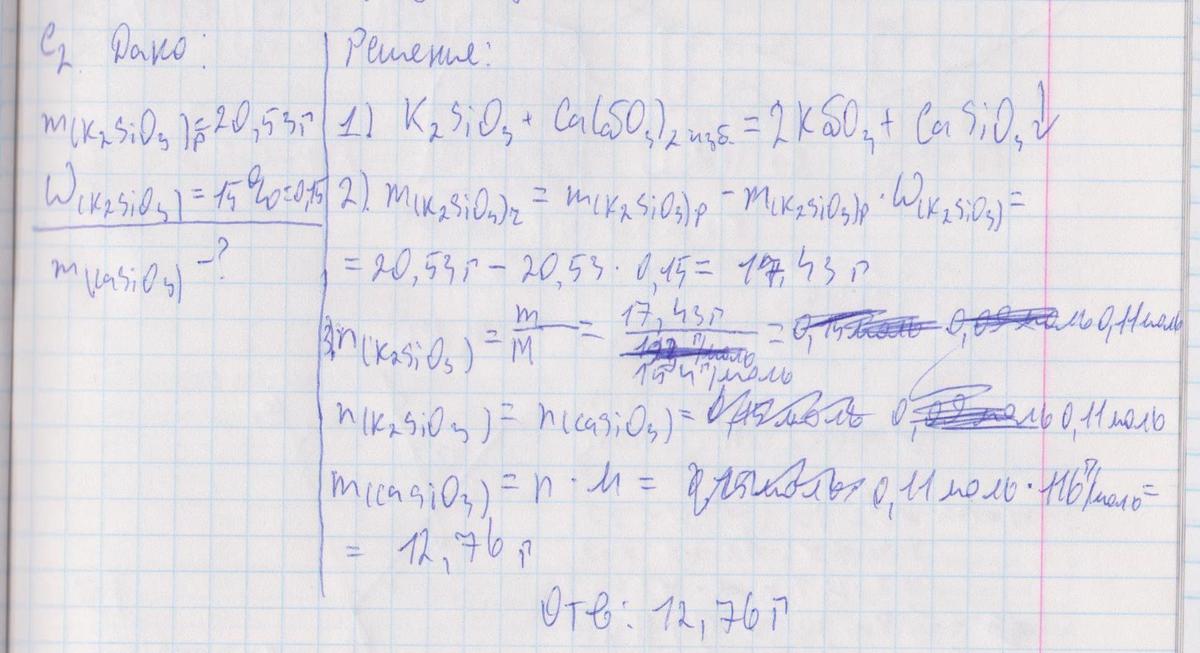 C2. Дано:
m(K2SiO3)р = 20,53г
W(K2SiO3) = 15% = 0,15
m(CaSiO3) - ?
Решение:
1) K2SiO3 + Ca(NO3)2 изб. = 2KNO3 + CaSiO3↓
2) m(K2SiO3)ч = m(K2SiO3)р - m(K2SiO3)р · W(K2SiO3) =
= 20,53г - 20,53 · 0,15 = 17,43 г
3) n(K2SiO3) = m/M = 17,43г / 154 г/моль = 0,11 моль
n(K2SiO3) = n(CaSiO3) = 0,11 моль
m(CaSiO3) = n · M = 0,11 моль · 116 г/моль =
= 12,76 г
Отв: 12,76 г